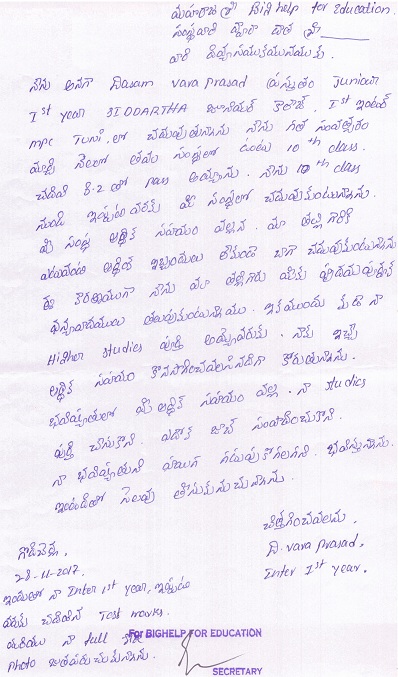 మహారాజశ్రీ Bighelp for Education.
సంస్థవారి ద్వారా దాత శ్రీ
వారి దివ్యసముఖమునకు.
నేను అనగా Dasam vara Prasad ప్రస్తుతం Junior
Ist year SIDDARTHA జూనియర్ కాలేజ్, Ist ఇంటర్
mpc Tuni, లో చదువుతున్నాను నేను గత సంవత్సరం
మార్చి నెలలో తమ సంస్థలో ఉంటు 10th class.
చదివి 8.2 తో pass అయ్యాను. నేను 10th class
నుండి ఇప్పటి వరకు మీ సంస్థలో చదువుకుంటున్నాను.
మీ సంస్థ ఆర్థిక సహాయం వల్లన. మా తల్లి గారికి
ఎటువంటి ఆర్థిక ఇబ్బందులు లేకుండా బాగా చదువుకుంటున్నాను
ఈ కారణముగా నేను మా తల్లిగారు మీకు హృదయపూర్వక
ధన్యవాదములు తెలుపుకుంటున్నాము. ఇకముందు కూడా నా
Higher studies పూర్తి అయ్యేవరకు. నాకు ఇచ్చే
ఆర్థిక సహాయం కొనసాగించవలసినదిగా కోరుతున్నాను.
భవిష్యత్తులో మీ ఆర్థిక సహాయం వల్ల. నా studies
పూర్తి చేసుకొని. ఏదోక జాబ్ సంపాదించుకొని.
నా భవిష్యత్తుని హాయిగా గడుపుకోగలనని. భావిస్తున్నాను.
ఇంతటితో సెలవు తీసుకుంటున్నాను.
చిత్తగించవలెను,
D. vara prasad,
Inter Ist year.
28-11-2017.
ఇందుతో నా Inter 1st year, ఇప్పటి
వరకు చదివిన Test marks.
మరియు నా full
photo జతపరుచుకున్నాను.
For BIGHELP FOR EDUCATION
SECRETARY